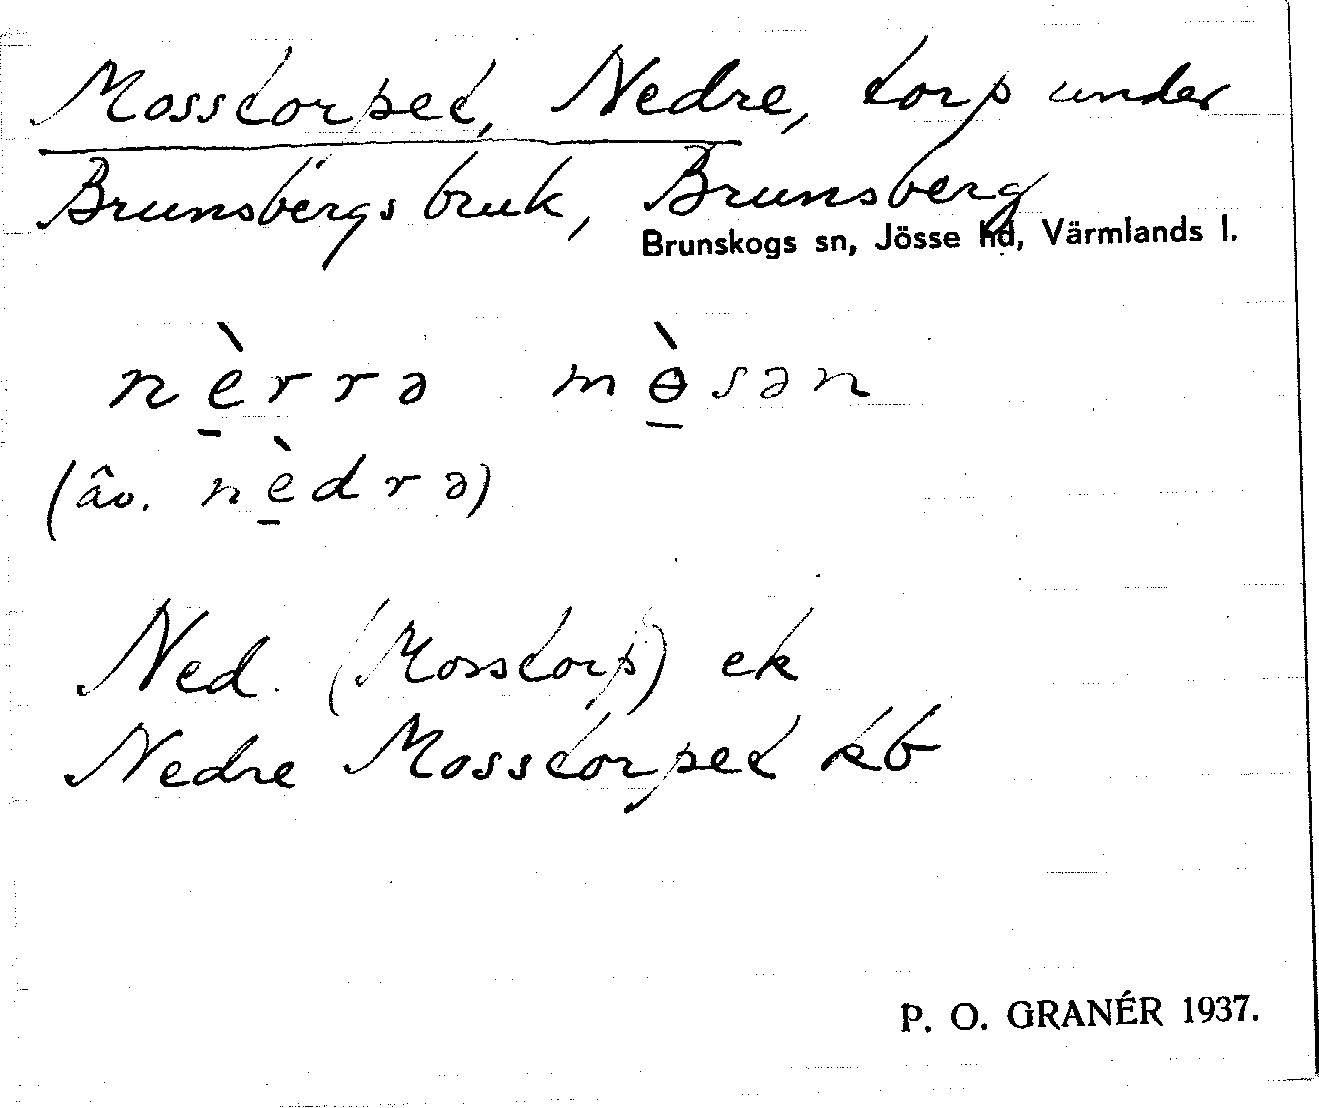 Mosstorpet, Nedre, torp under
Brunsbergs bruk, Brunsberg
Brunskogs sn, Jösse hd, Värmlands l.
nè̱rrə mɵ̱̀sən
(äv. nè̱drə)
Ned. (Mosstorp) ek
Nedre Mosstorpet kb
P. O. GRANÉR 1937.